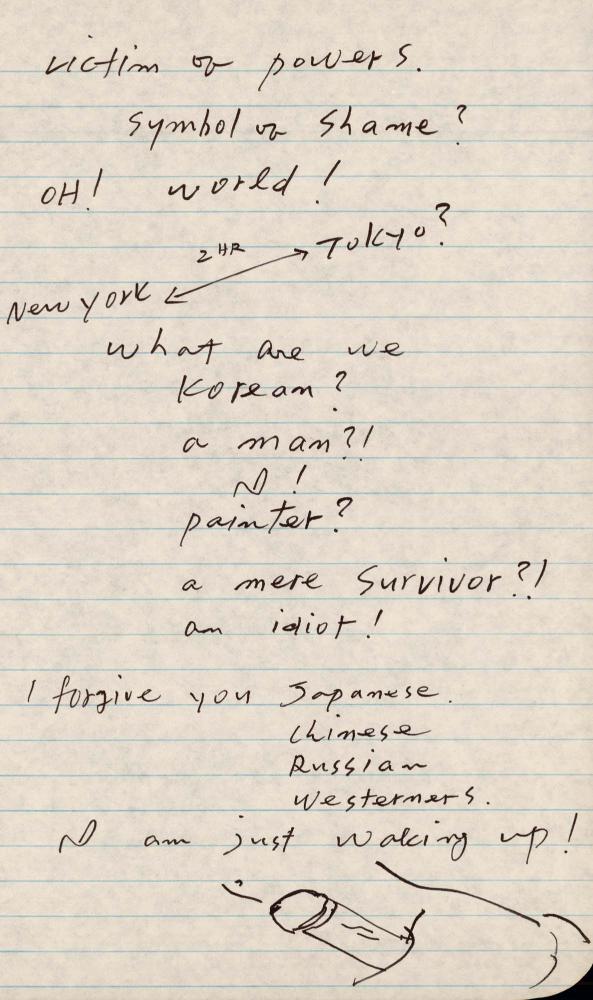 victim of powers.
Symbol of shame?
OH! world!
2 HR
New york ↔ Tokyo?
what are we
Korean?
a man?!
I!
painter?
a mere Survivor?!
an idiot!
I forgive you Japanese.
Chinese
Russian
Westerners.
I am just waking up!